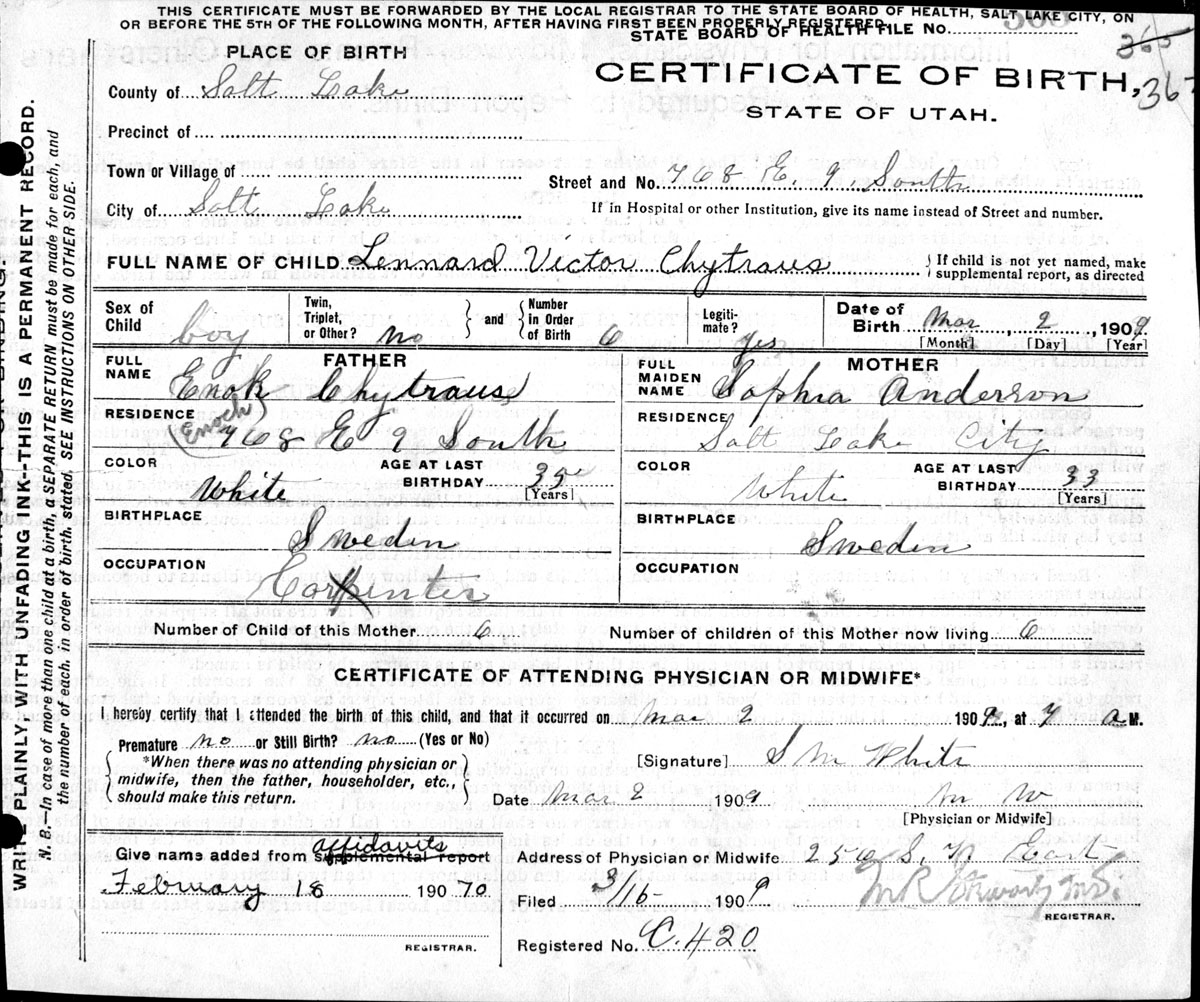 THIS CERTIFICATE MUST BE FORWARDED BY THE LOCAL REGISTRAR TO THE STATE BOARD OF HEALTH, SALT LAKE CITY, ON
OR BEFORE THE 5TH OF THE FOLLOWING MONTH, AFTER HAVING FIRST BEEN PROPERLY REGISTERED.
STATE BOARD OF HEALTH FILE No.
365
367
PLACE OF BIRTH
CERTIFICATE OF BIRTH,
STATE OF UTAH.
County of Salt Lake
Precinct of
Town or Village of
City of Salt Lake
Street and No. 768 E. 9. South
If in Hospital or other Institution, give its name instead of Street and number.
FULL NAME OF CHILD Lennard Victor Chytraus { If child is not yet named, make supplemental report, as directed
Sex of Child boy Twin, Triplet, or Other? no and Number in Order of Birth 6 Legitimate? yes Date of Birth Mar 2, 1909
[Month] [Day] [Year]
FATHER
FULL NAME Enok Chytraus
(Enoch)
RESIDENCE 768 E 9 South
COLOR White AGE AT LAST BIRTHDAY 35 [Years]
BIRTHPLACE Sweden
OCCUPATION Carpenter
MOTHER
FULL MAIDEN NAME Sophia Anderson
RESIDENCE Salt Lake City
COLOR White AGE AT LAST BIRTHDAY 33 [Years]
BIRTHPLACE Sweden
OCCUPATION
Number of Child of this Mother 6 Number of children of this Mother now living 6
CERTIFICATE OF ATTENDING PHYSICIAN OR MIDWIFE*
I hereby certify that I attended the birth of this child, and that it occurred on Mar 2 1909, at 7 a M.
Premature no or Still Birth? no (Yes or No)
*When there was no attending physician or midwife, then the father, householder, etc., should make this return.
[Signature] S M White
Date Mar 2 1909 M W
[Physician or Midwife]
Give name added from supplemental report affidavits
February 18 190 70
REGISTRAR.
Address of Physician or Midwife 250 S. 7 East
Filed 3/16 1909
REGISTRAR.
Registered No. C.420
WRITE PLAINLY WITH UNFADING INK--THIS IS A PERMANENT RECORD.
N. B.—In case of more than one child at a birth, a SEPARATE RETURN must be made for each, and
the number of each, in order of birth, stated. SEE INSTRUCTIONS ON OTHER SIDE.